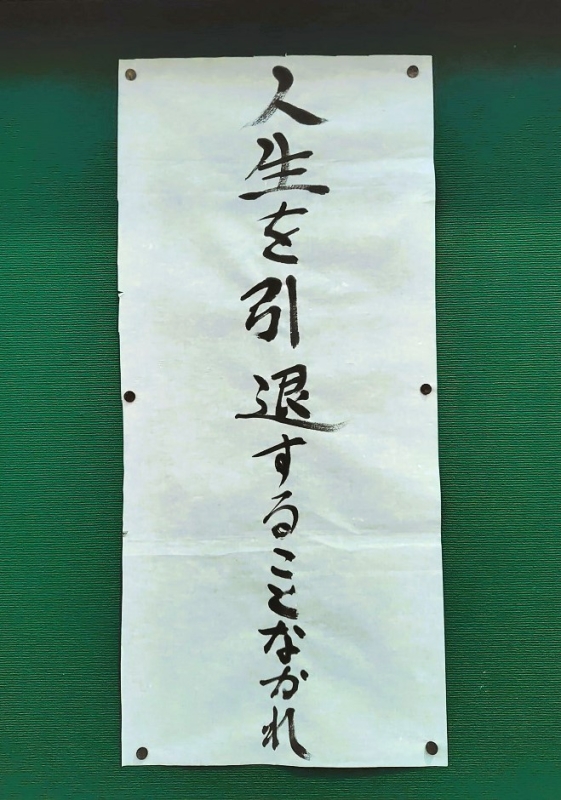 人生を引退することなかれ